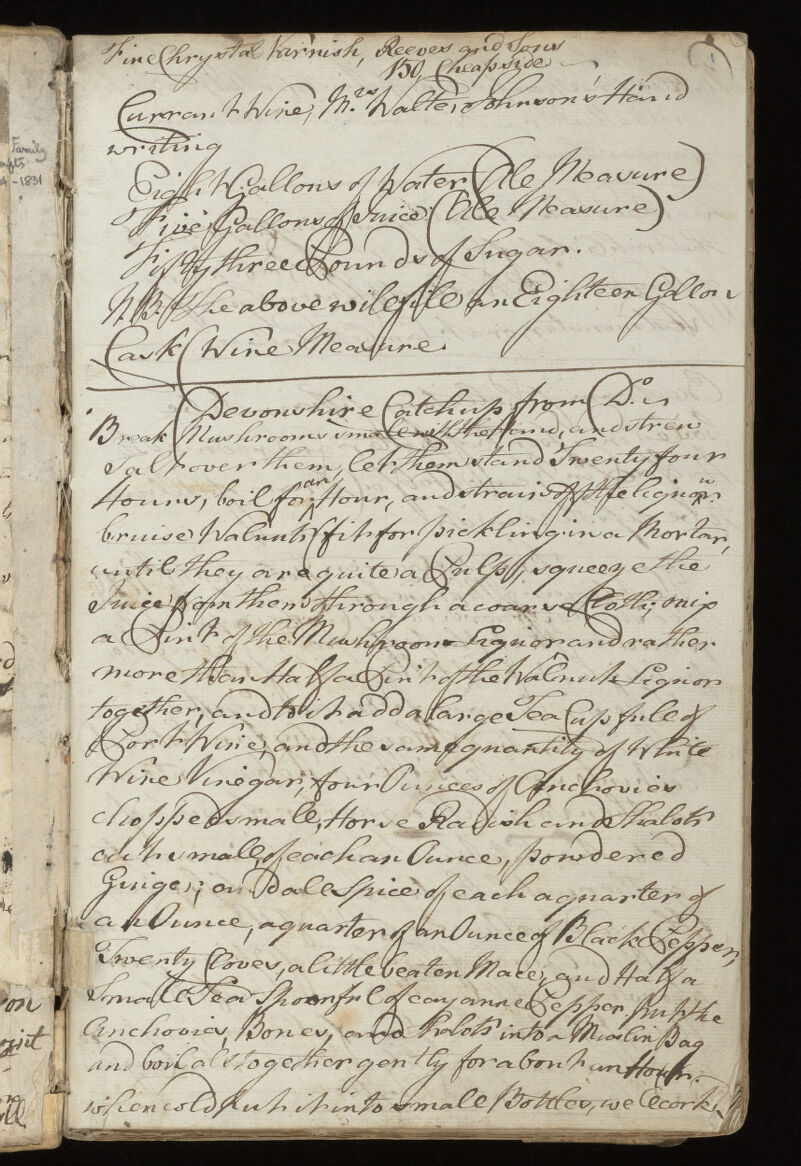 Fine Chrystal Varnish, Reeves and Sons
150, Cheapside
Currant Wine, Mrs Walter Johnson's Hand
writing
Eight Gallons of Water (Ale Measure)
Five Gallons of Juice (Ale Measure)
Fifty three Pounds of Sugar.
N.B. The above will fill an Eighteen Gallon
Cask (Wine Measure.
Devonshire Catchup from Do.
Break Mushrooms small with the Hand, and strew
Salt over them, let them stand Twenty four
Hours, boil for an Hour, and strain off the liquor.
bruise Walnuts (fit for pickling in a Mortar,
until they are quite a Pulp, squeeze the
Juice from them through a coarse Cloth; mix
a Pint of the Mushroom Liquor and rather
more than Half a Pint of the Walnut Liquor
together, and to it add a large Tea Cup full of
Port Wine, and the same quantity of White
Wine Vinegar, four Ounces of Anchovies
chopped small, Horse Radish and Shalots
cut small, of each an Ounce, powdered
Ginger, and allspice of each a quarter of
an Ounce, a quarter of an Ounce of Black Pepper,
Twenty Cloves, a little beaten Mace, and Half a
Small Tea Spoonful of cayanne Pepper. Put the
Anchovies, Bones, and Shalots into a Muslin Bag
and boil all together gently for about an Hour.
when cold put it into small Bottles, well cork
Family
-1831